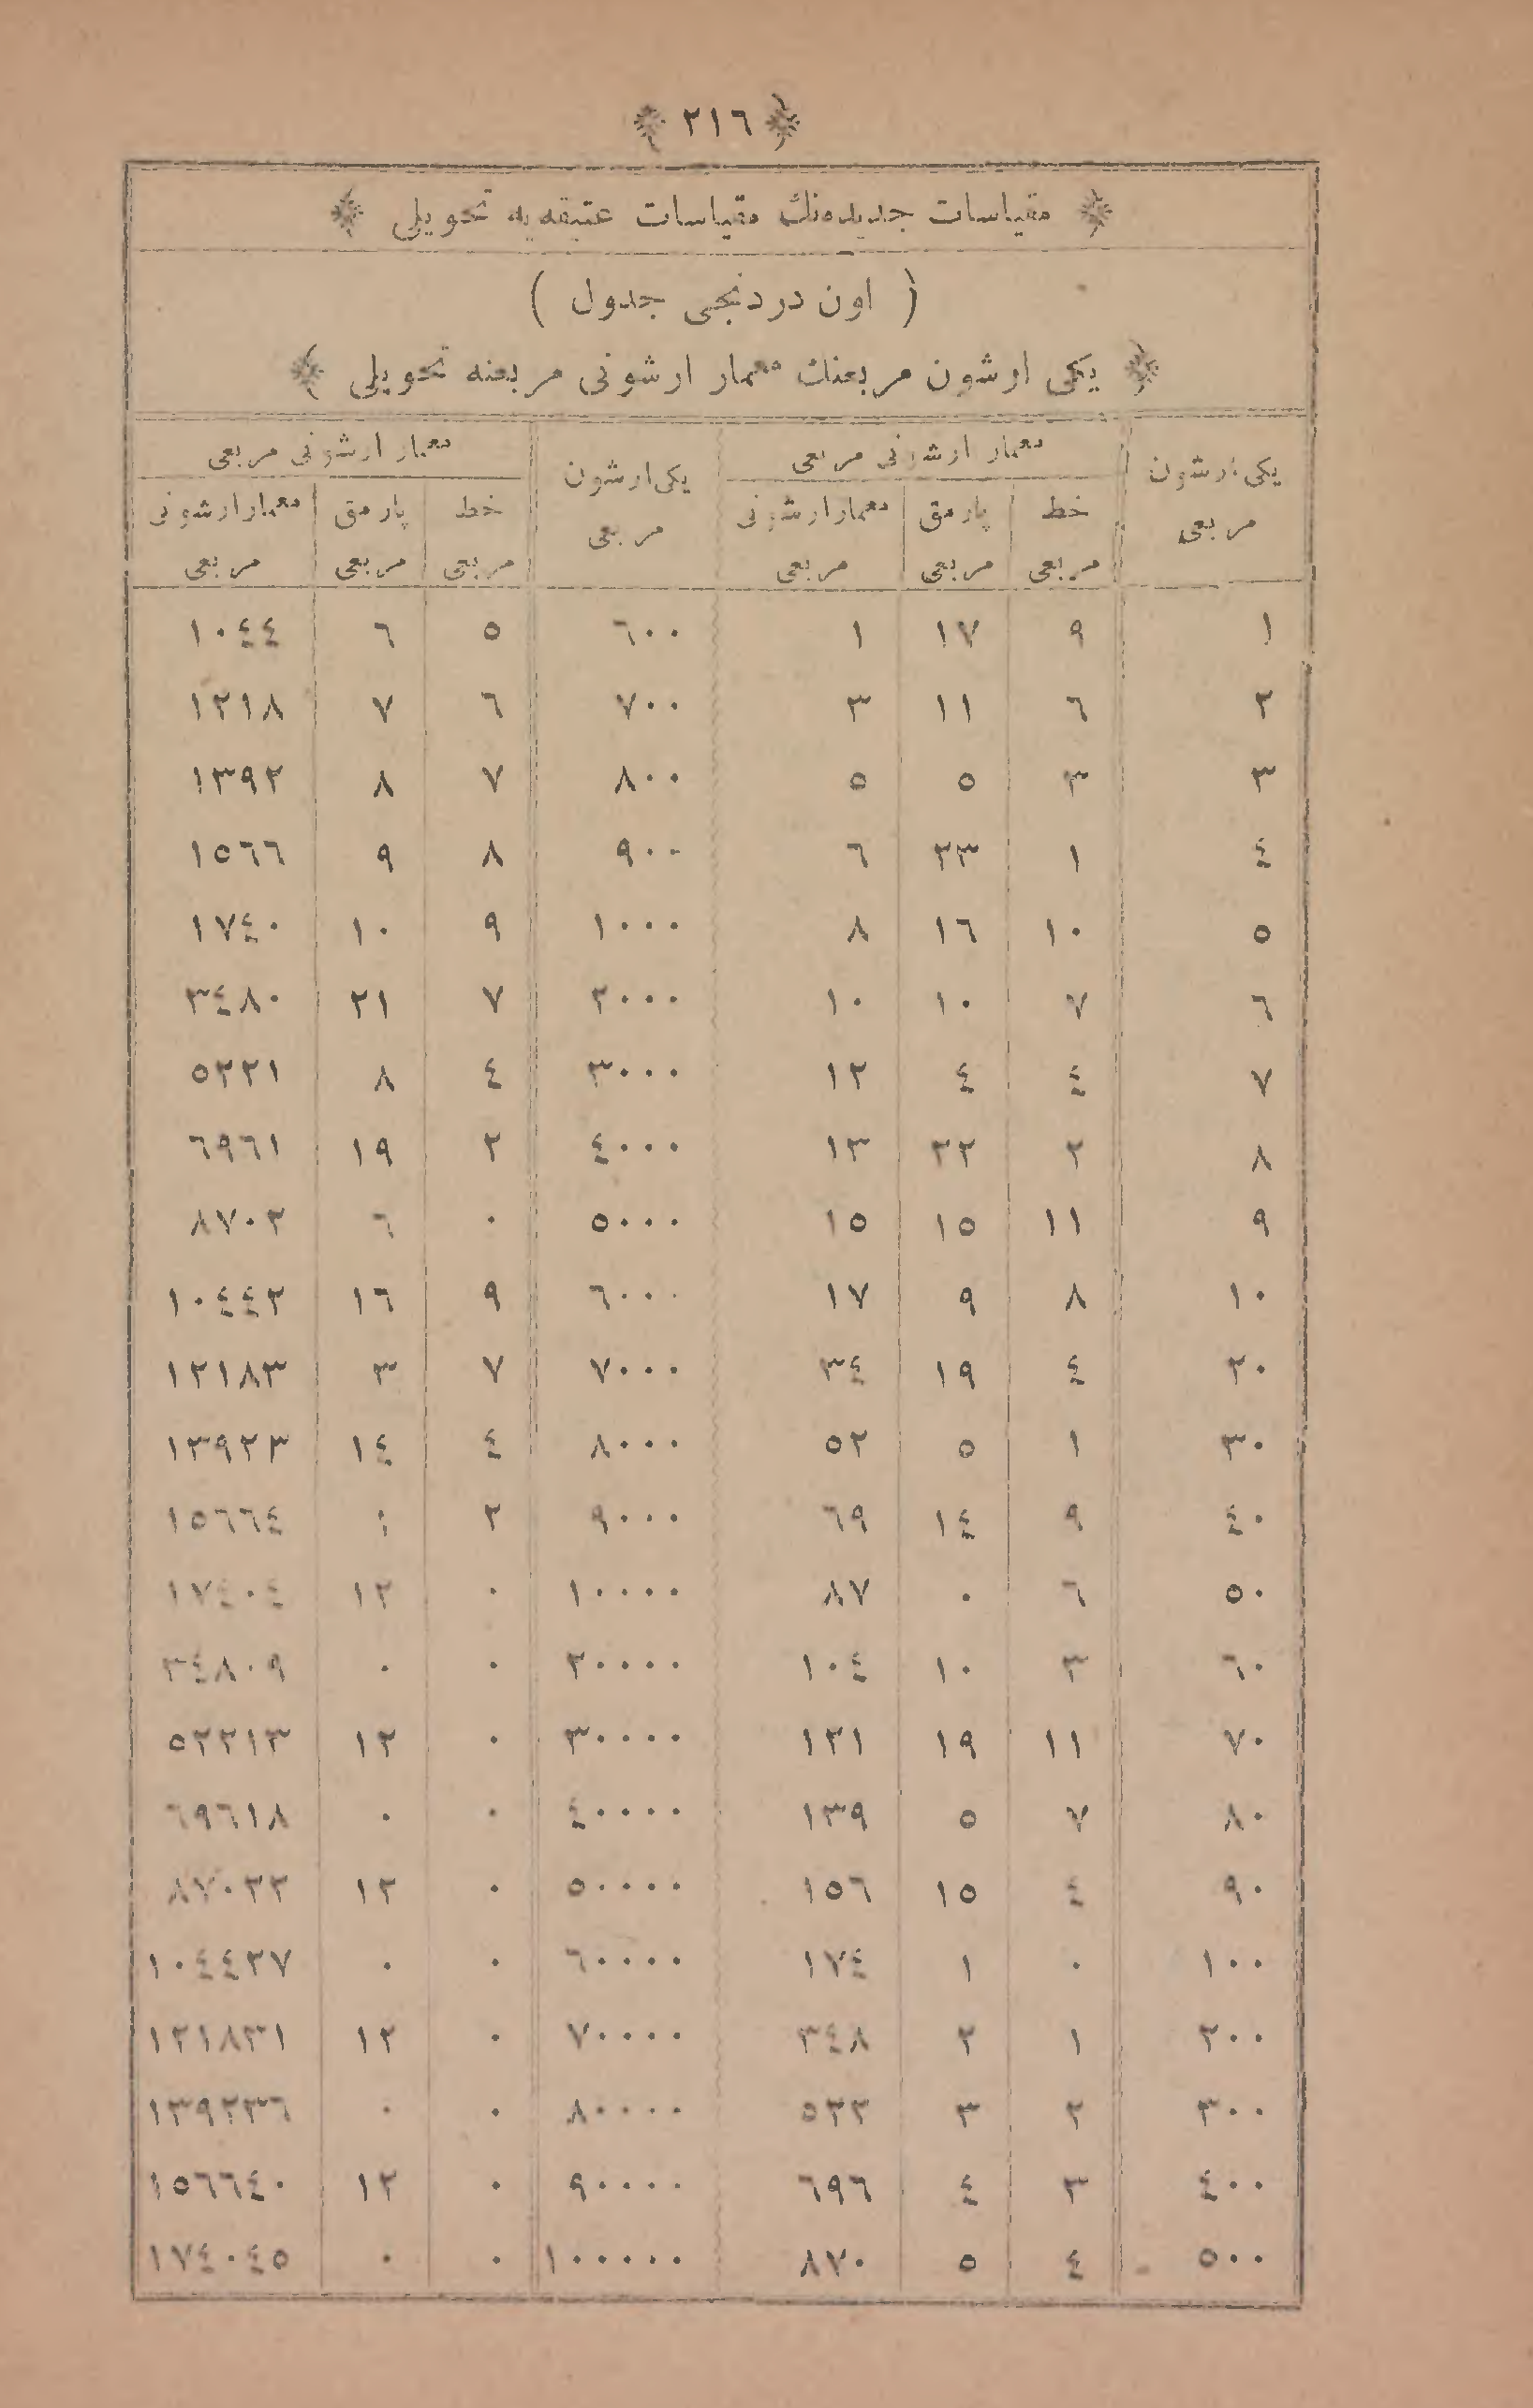 ﴿ ٢١٦ ﴾
﴿ مقياسات جديده‌نك مقياسات عتيقه‌يه تحويلى ﴾
( اون دردنجى جدول )
﴿ يكى ارشون مربعنك معمار ارشونى مربعنه تحويلى ﴾
يكى ارشون مربعى | معمار ارشونى مربعى | يكى ارشون مربعى | معمار ارشونى مربعى
خط مربعى | پارمق مربعى | معمار ارشونى مربعى | خط مربعى | پارمق مربعى | معمار ارشونى مربعى
١ | ٩ | ١٧ | ١ | ٦٠٠ | ٥ | ٦ | ١٠٤٤
٢ | ٦ | ١١ | ٣ | ٧٠٠ | ٦ | ٧ | ١٢١٨
٣ | ٣ | ٥ | ٥ | ٨٠٠ | ٧ | ٨ | ١٣٩٢
٤ | ١ | ٢٣ | ٦ | ٩٠٠ | ٨ | ٩ | ١٥٦٦
٥ | ١٠ | ١٦ | ٨ | ١٠٠٠ | ٩ | ١٠ | ١٧٤٠
٦ | ٧ | ١٠ | ١٠ | ٢٠٠٠ | ٧ | ٢١ | ٣٤٨٠
٧ | ٤ | ٤ | ١٢ | ٣٠٠٠ | ٤ | ٨ | ٥٢٢١
٨ | ٢ | ٢٢ | ١٣ | ٤٠٠٠ | ٢ | ١٩ | ٦٩٦١
٩ | ١١ | ١٥ | ١٥ | ٥٠٠٠ | ٠ | ٦ | ٨٧٠٢
١٠ | ٨ | ٩ | ١٧ | ٦٠٠٠ | ٩ | ١٦ | ١٠٤٤٢
٢٠ | ٤ | ١٩ | ٣٤ | ٧٠٠٠ | ٧ | ٣ | ١٢١٨٣
٣٠ | ١ | ٥ | ٥٢ | ٨٠٠٠ | ٤ | ١٤ | ١٣٩٢٣
٤٠ | ٩ | ١٤ | ٦٩ | ٩٠٠٠ | ٢ | ١ | ١٥٦٦٤
٥٠ | ٦ | ٠ | ٨٧ | ١٠٠٠٠ | ٠ | ١٢ | ١٧٤٠٤
٦٠ | ٣ | ١٠ | ١٠٤ | ٢٠٠٠٠ | ٠ | ٠ | ٣٤٨٠٩
٧٠ | ١١ | ١٩ | ١٢١ | ٣٠٠٠٠ | ٠ | ١٢ | ٥٢٢١٣
٨٠ | ٧ | ٥ | ١٣٩ | ٤٠٠٠٠ | ٠ | ٠ | ٦٩٦١٨
٩٠ | ٤ | ١٥ | ١٥٦ | ٥٠٠٠٠ | ٠ | ١٢ | ٨٧٠٢٢
١٠٠ | ٠ | ١ | ١٧٤ | ٦٠٠٠٠ | ٠ | ٠ | ١٠٤٤٢٧
٢٠٠ | ١ | ٢ | ٣٤٨ | ٧٠٠٠٠ | ٠ | ١٢ | ١٢١٨٣١
٣٠٠ | ٢ | ٣ | ٥٢٢ | ٨٠٠٠٠ | ٠ | ٠ | ١٣٩٢٣٦
٤٠٠ | ٣ | ٤ | ٦٩٦ | ٩٠٠٠٠ | ٠ | ١٢ | ١٥٦٦٤٠
٥٠٠ | ٤ | ٥ | ٨٧٠ | ١٠٠٠٠٠ | ٠ | ٠ | ١٧٤٠٤٥